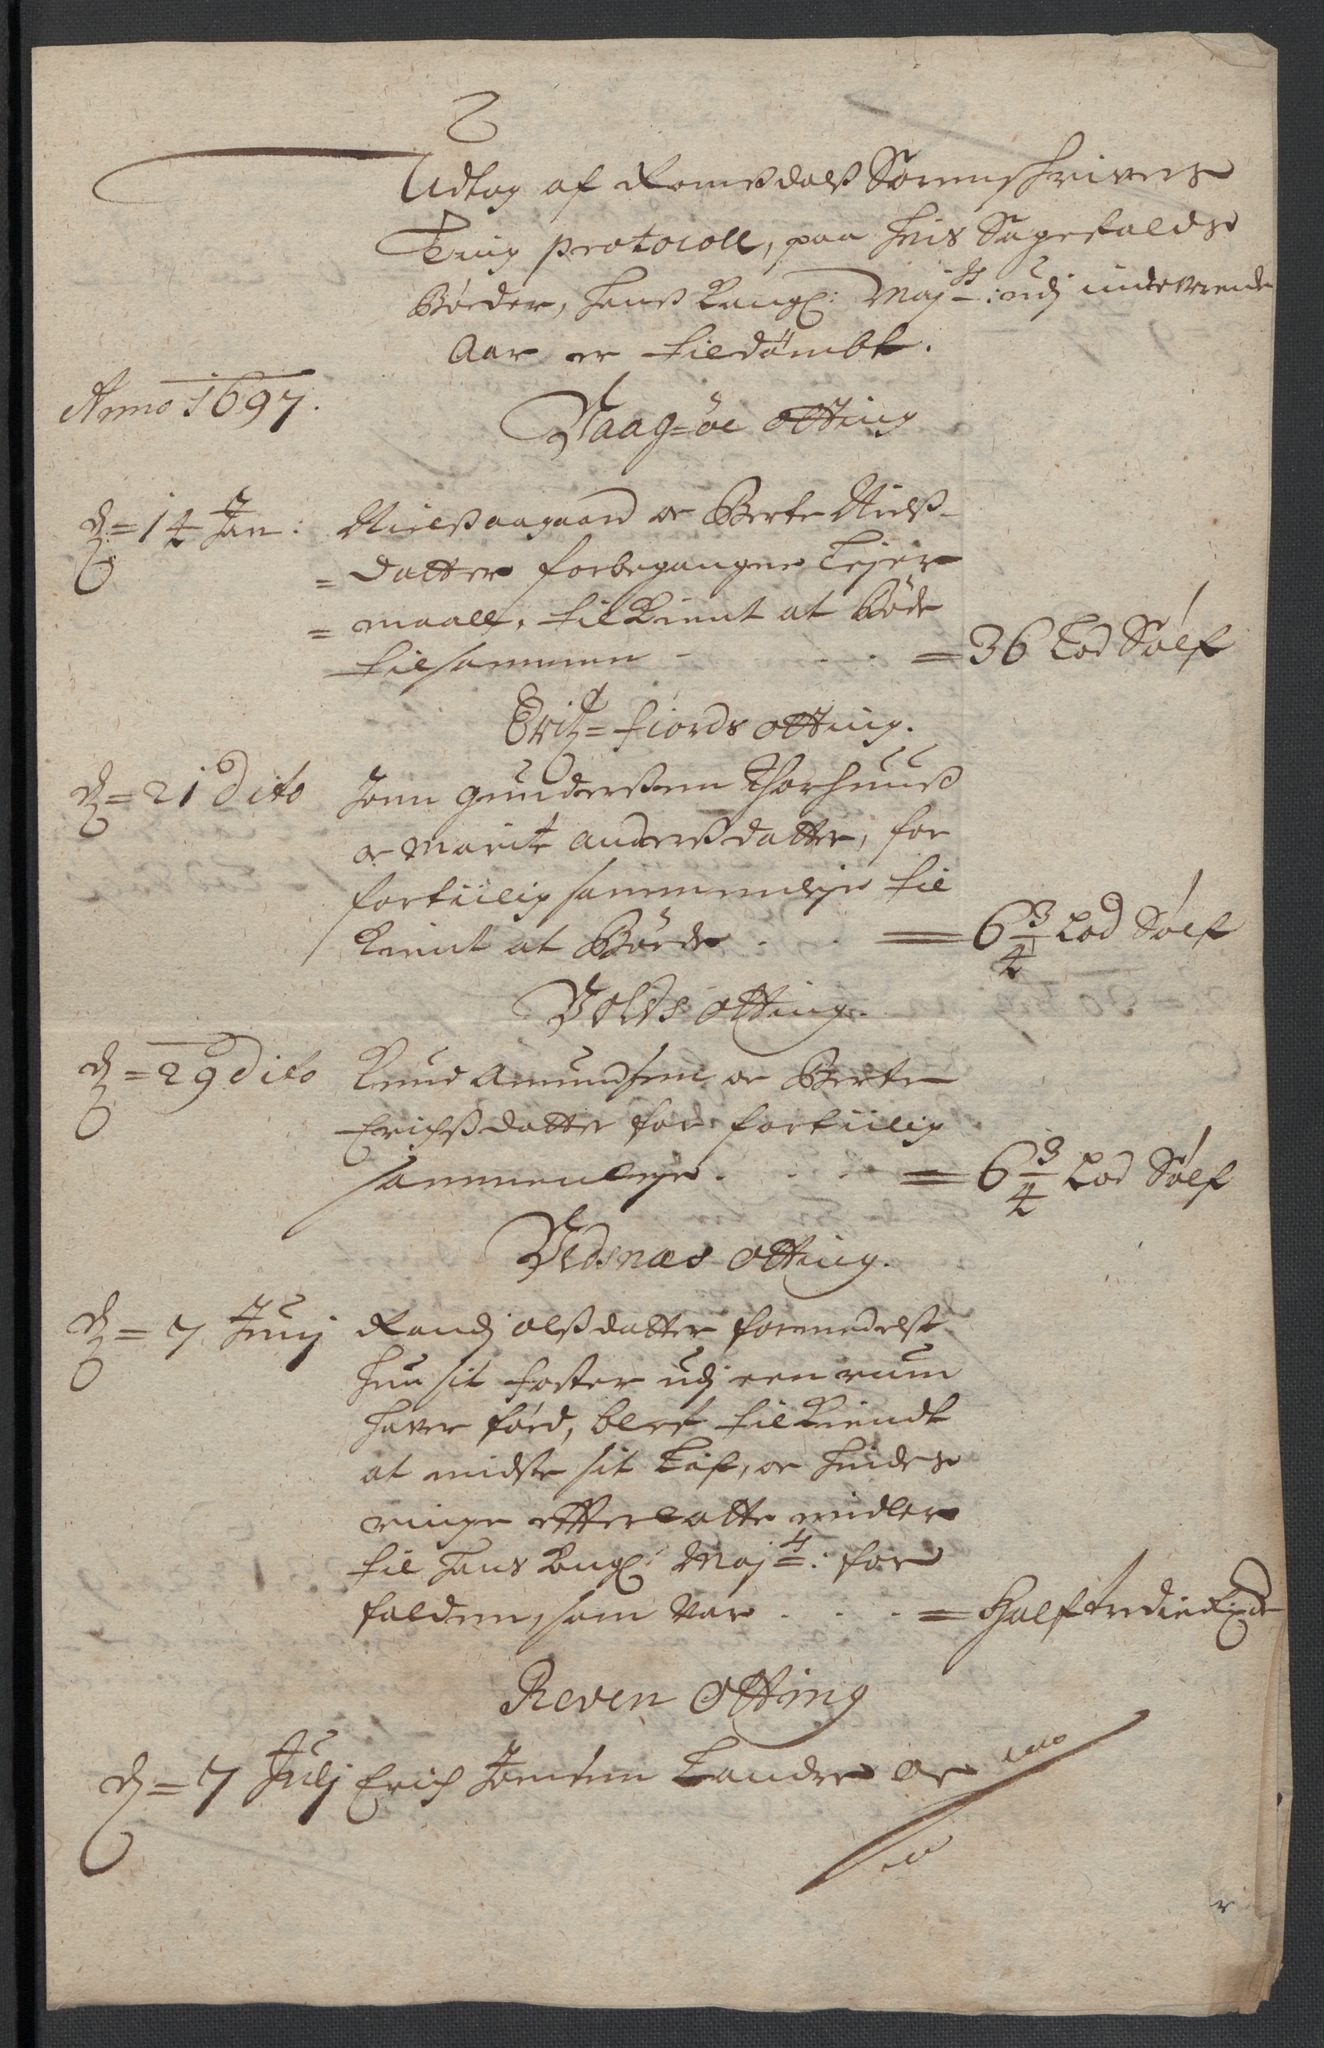 Udtog af Romsdals Sorenschrivers
Ting protocoll, paa hvis Sagefalds
Bøeder, hans Kongl: Maj:ts: udj indeverende
Aar er tildømbt.
Anno 1697.
Vaag-øe otting
d= 14 Jan: Niels aagaard oc Berte Niels-
=datter forbegangne Lejer
=maall, tilkient at Bøde
tilsammen - . . . = 36 Lod Sølf
Eritz=fiords otting.
d= 21 Dito Joen gunderssøen Thorhuus
oc Marite andersdatter, for
fortiilig sammenleje til
kient at Bøede . . = 6 3/4 Lod Sølf
Volds otting.
d= 29 Dito Knud Amundsen oc Berte
Erichsdatter for fortiilig
sammenleje . . . = 6 3/4 Lod Sølf
Vedsnæs otting.
d= 7 Junj Randj olsdatter formedelst
hun sit foster udj een
hafver fød, blef tilkiendt
at midste sit Lif, oc hendes
ringe efterlatte midler
til Hans Kongl: Maj:t: for
falden, som var . . . = Half tredie Rixdr
Reven Otting
d= 7 Julj Erich Joensen Landre oc